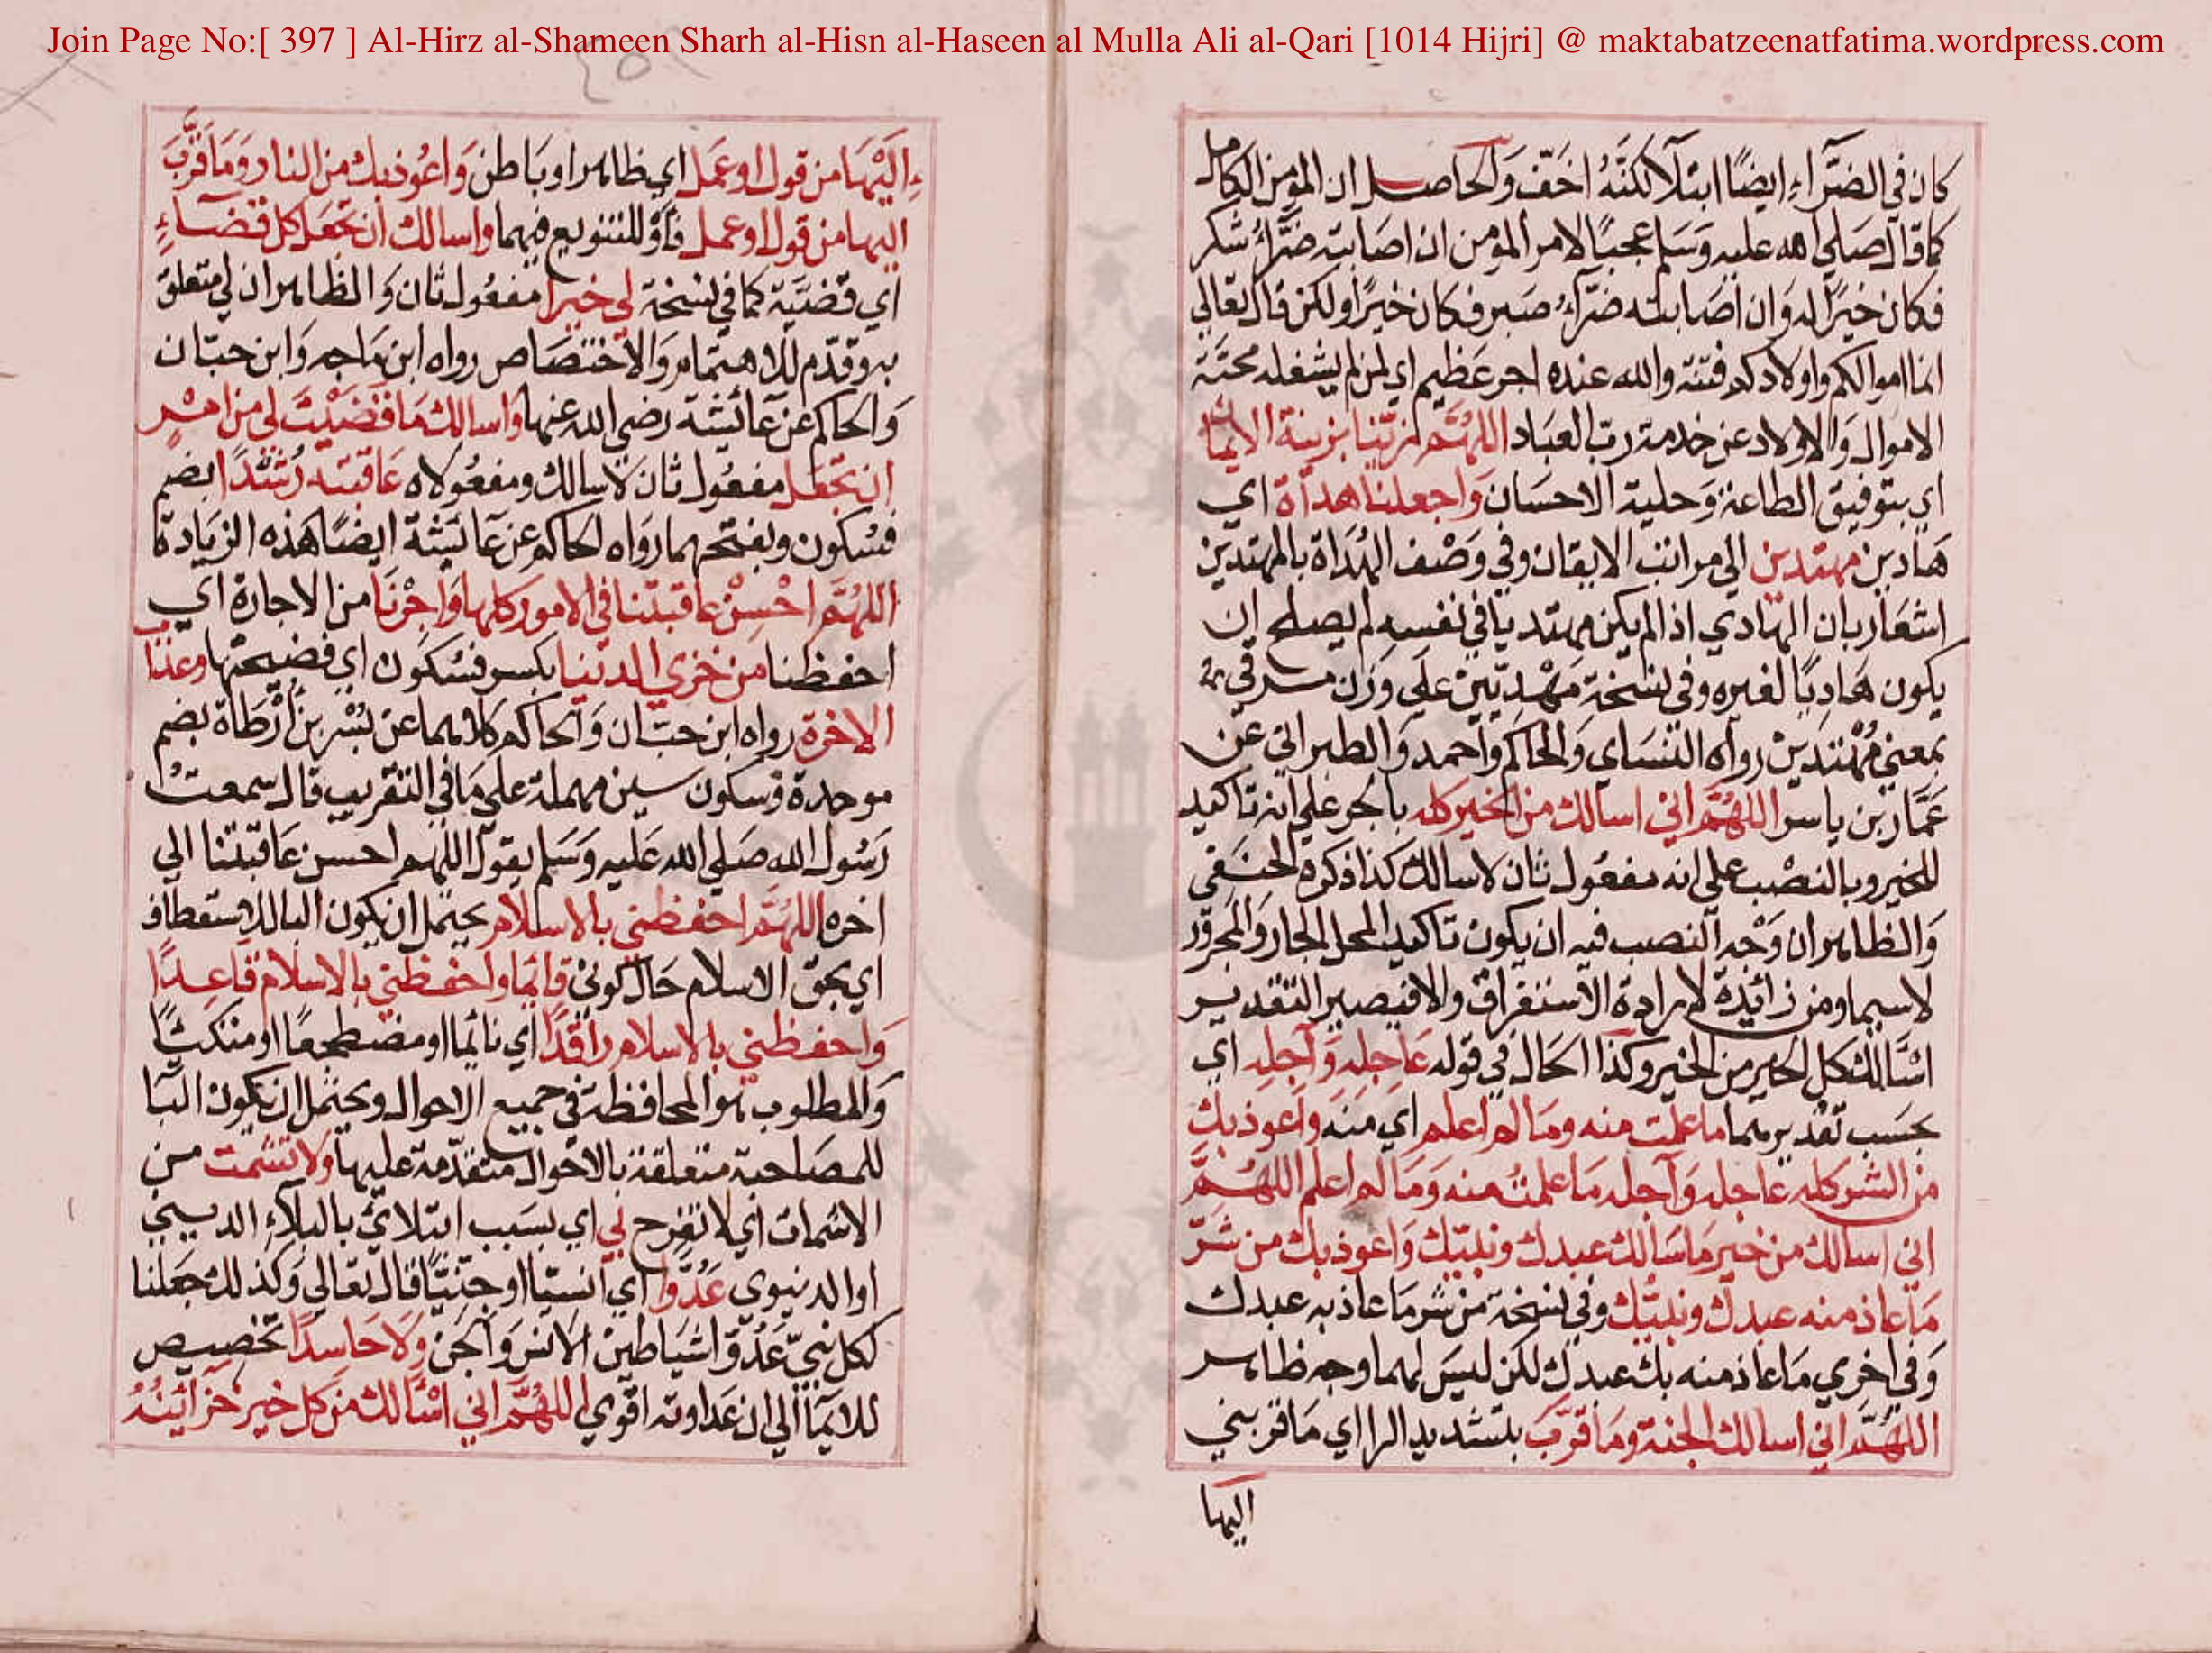 Join Page No:[ 397 ] Al-Hirz al-Shameen Sharh al-Hisn al-Haseen al Mulla Ali al-Qari [1014 Hijri] @ maktabatzeenatfatima.wordpress.com
كان في الضرّاء ايضًا ابتلآ لكنّه اخفّ وَالحاصل ان المؤمن الكامل
كما قال صلي الله عليه وَسَلم عجبًا لامر المؤمن ان اصابته ضرّآءُ شكر
فكان خيرًا له وَان اصابته ضرّآءُ صبر فكان خيرًا ولكن قال تعالي
انما اموالكم واولادكم فتنة والله عنده اجر عَظيم اي لمن لم يشغله محبّة
الاموال وَالاولاد عن خدمة ربّ العبَاد اللهُمّ زيّنا بزينة الايمان
اي بتوفيق الطاعة وَحلية الاحسَان وَاجعلنا هداة اي
هَادين مهتدين الي مراتب الايقان وفي وَصْف الهُدَاة بالمهتدين
اشعَار بان الهادي اذا لم يكن مهتديا في نفسه لم يصلح ان
يكون هَادِيًا لغيره وفي نسخة مَهْدِيّينْ علَي وَزن مرميّ
بمعني مُهْتَدِينْ رواه النسَاي وَالحاكم وَاحمد وَالطبراني عَن
عَمّار بن ياسر اللهُمّ اني اسالك من الخير كله بالجر علي انه تاكيد
للخير وبالنصْب علي انه مفعُول ثان لاسالك كذا ذكره الحنَفي
وَالظاهر ان وَجْه النصب فيه ان يكون تاكيدا لمحل الجار وَالمجرُور
لاسيما ومن زائدة لارادة الاستغراق والا فيصير التقدير
اسْاَلك كل الخير من الخير وكذا الحَال في قوله عَاجلِه وَآجلِه اي
بحسَب تقديرهما ما علمت منه ومَا لم اعلم اي منهَ واَعوذ بك
من الشر كله عَاجله وَآجله مَا علمتُ منه وَمَا لم اعلم اللهُمّ
اني اسالك من خير مَا سَالك عبدك ونبيّك وَاعوذ بك من شرّ
مَا عاذ منه عبدك ونبيّك وفي نسخة من شر مَا عاذ به عبدك
وَفي اخري مَا عاذ منه بك عبدك لكن ليسَ لهما وجه ظاهر
اللهُمّ اني اسالك الجنة ومَا قرّبَ بتشديد الرا اي مَا قربني
اليها
اِلَيْهَا من قول او عَمَل اي ظاهرا وبَاطن وَاعُوذ بك من النار وَمَا قرّبَ
اليها من قول او عمل فاَوْ للتنويع فيهما واسالك ان تجعَل كل قضَآءٍ
اي قضيّة كما في نسخة لي خيرا مفعُول ثان وَالظاهر ان لي متعلق
به وقدّم للاهتمام وَالاختصَاص رواه ابن مَاجه وَابن حبّان
وَالحاكم عن عَائيشة رضي الله عنها وَاسالك مَا قضَيْتَ لي من امْرٍ
ان تجْعَل مفعُول ثان لاسالك ومفعُولاه عَاقبتَه رُشْدًا بضم
فسُكون وبفتحهما رَواه الحاكم عن عَائيشة ايضًا هَذه الزيَادة
اللهُمّ احْسِنْ عاقبتنا في الامور كلها وَاَجْرِنَا من الاجارة اي
احفظنا من خزي الدنيا بكسر فسُكون اي فضيحتها وعذاب
الاخرة رواه ابن حبّان وَالحاكم كلاهما عن بُسْر بن اَرْطَاة بضم
موحدة فسكون سين مهملة علي مَا في التقريب قال سمعتُ
رَسُول الله صَلي الله عَليه وَسَلم يقول اللهم احسن عَاقبتنا الي
اخره اللهُمّ احفظني بالاسلام يحتمل ان يكون البا للاستعطاف
اي بحق الاسلام حَال كوني قائما واحفظني بالاسلام قاعِدًا
وَاحفظني بالاسلام راقدًا اي نائما او مضطجعًا او متكئًا
وَالمطلوب هو المحافظة في جميع الاحوال ويحتمل ان يكون البَا
للمصَاحبة متعلقة بالاحوال متقدّمة عليها وَلا تشمت من
الاشمات اي لا تفرح بي اي بسَبب ابتلائي بالبلآء الديني
او الدنيوي عَدُوّا اي انسيّا او جنّيًّا قال تعَالي وَكذلك جَعلنا
لكل نبيّ عَدُوّا شيَاطين الانس وَالجن وَلَا حَاسِدًا تخصيص
للايمآ الي ان عَداوته اقوي اللهُمّ اني اسْاَلك من كل خير خزائنُهُ